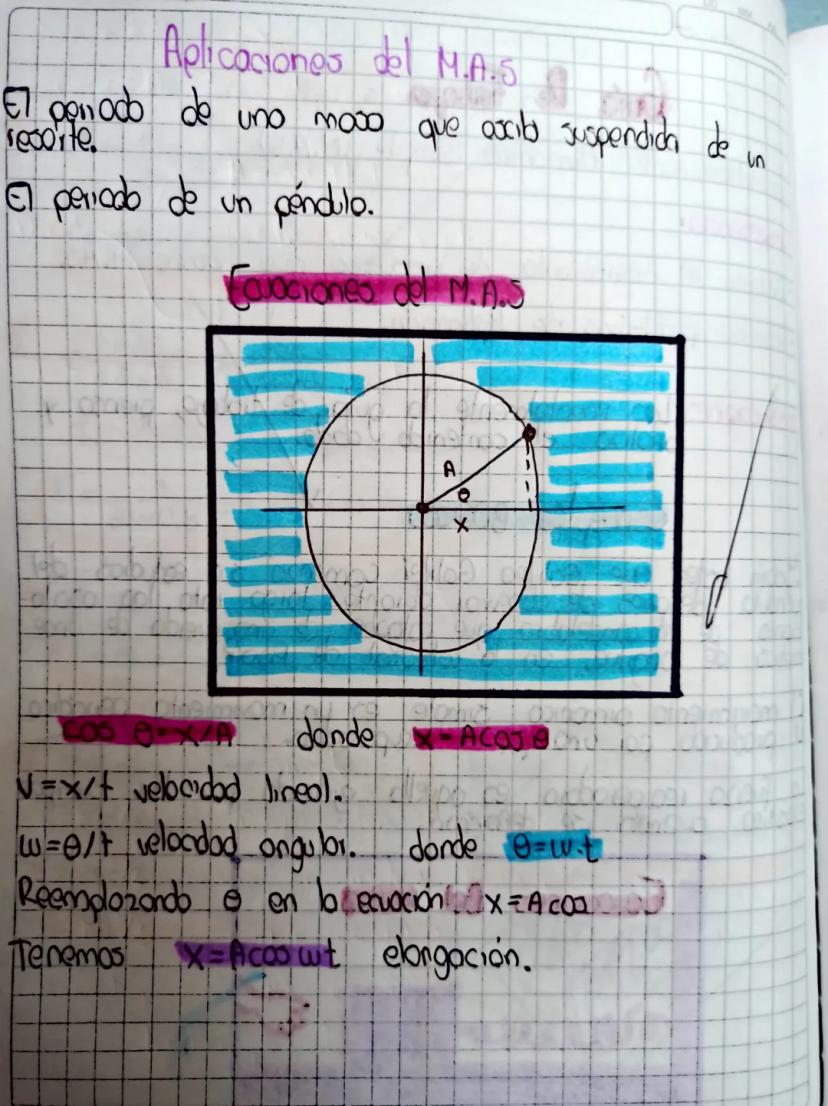 Aplicaciones del M.A.S
El periodo de una masa que oscila suspendida de un
resorte.
El periodo de un péndulo.
Ecuaciones del M.A.S
A
θ
x
cos θ = x/A donde x = A cos θ
V = x/t velocidad lineal.
w = θ/t velocidad angular. donde θ = w.t
Reemplazando θ en la ecuación x = A cos
Tenemos x = A cos wt elongación.